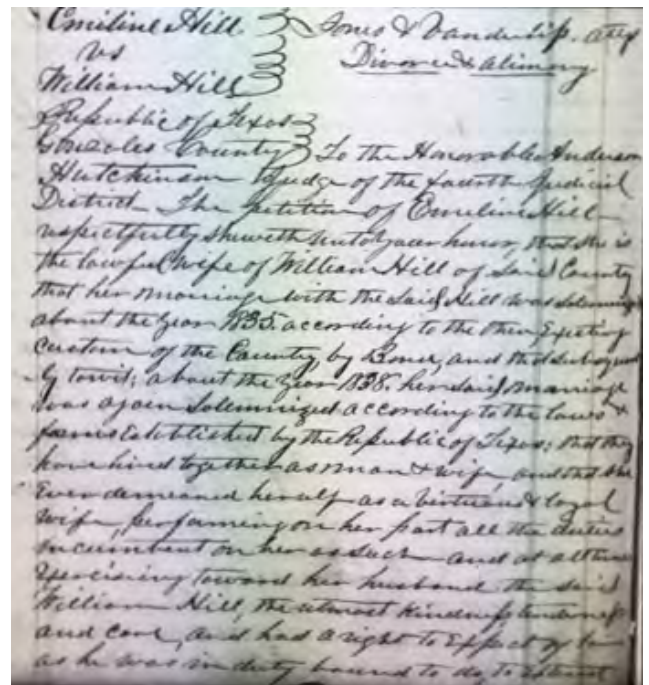 Emiline Hill
vs
William Hill
Jones & Vanderlip. atty
Divorce & alimony
Republic of Texas
Gonzales County
To the Honorable Anderson
Hutchinson Judge of the fourth Judicial
District The petition of Emiline Hill
respectfully sheweth unto your honor, that she is
the lawful wife of William Hill of Said County
that her marriage with the Said Hill was Solemnized
about the year 1835. according to the then Existing
Custom of the Country, by Bond, and that Subsequent
ly towit; about the year 1838. her Said marriage
was again Solemnized according to the laws &
forms Established by the Republic of Texas; that they
have lived together as man & wife and that she
Ever demeaned herself as a virtuous & loyal
wife, performing on her part all the duties
incumbent on her as Such and at all times
Exercising toward her husband the Said
William Hill, the utmost Kindness tenderness
and care, and had a right to Expect of him
as he was in duty bound to do, to